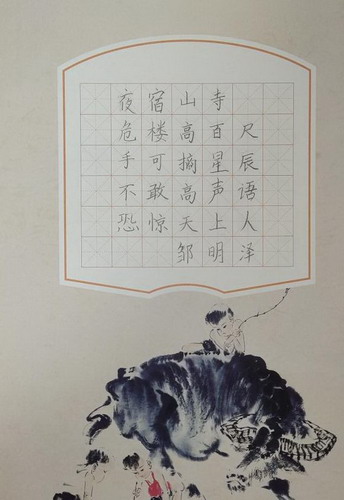 夜宿山寺
危楼高百尺
手可摘星辰
不敢高声语
恐惊天上人
邹明泽